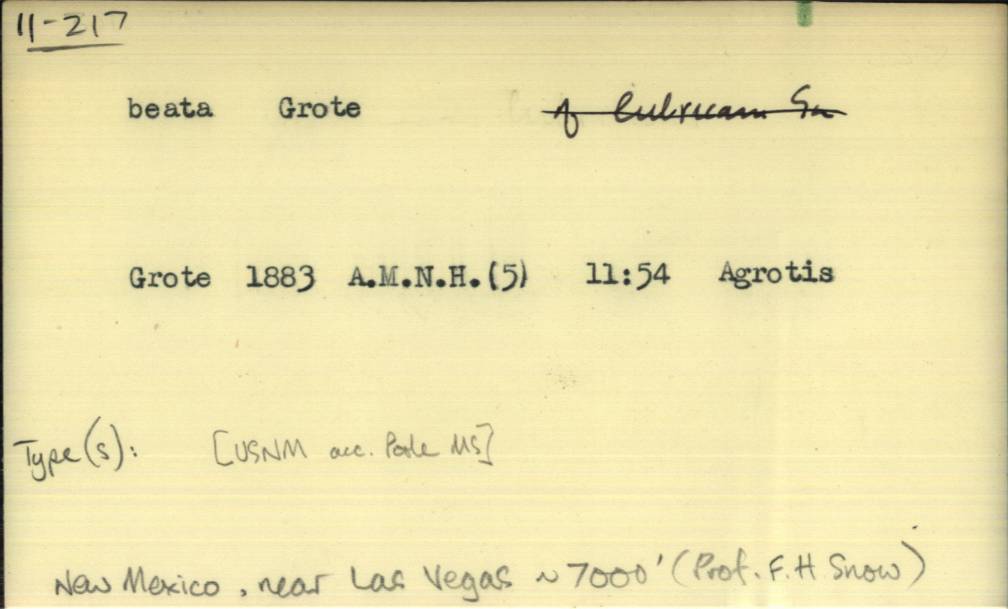 11-217
beata Grote
Grote 1883 A.M.N.H.(5) 11:54 Agrotis
Type(s): [USNM acc. Poole MS]
New Mexico, near Las Vegas ~ 7000' (Prof. F.H Snow)